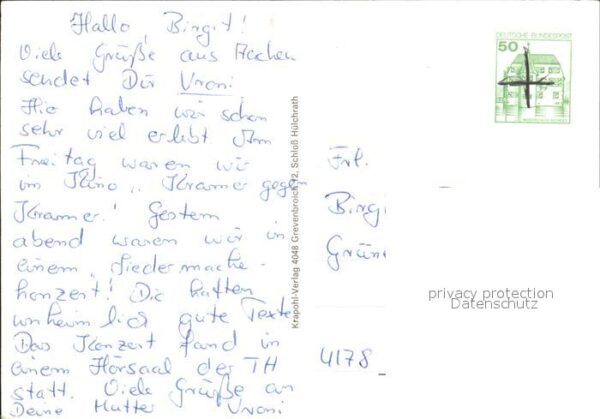 Hallo, Birgit!
Viele Grüße aus Aachen
sendet Dir Vroni
Hie haben wir schon
sehr viel erlebt. Am
Freitag waren wir
im Kino „Kramer gegen
Kramer“! Gestern
abend waren wir in
einem „Liedermache-
konzert! Die hatten
unheimlich gute Texte
Das Konzert fand in
einem Hörsaal der TH
statt. Viele Grüße an
Deine Mutter Vroni
Krapohl-Verlag 4048 Grevenbroich 12, Schloß Hülchrath
DEUTSCHE BUNDESPOST
50
Frl.
Birgi
Grün
4178
privacy protection
Datenschutz